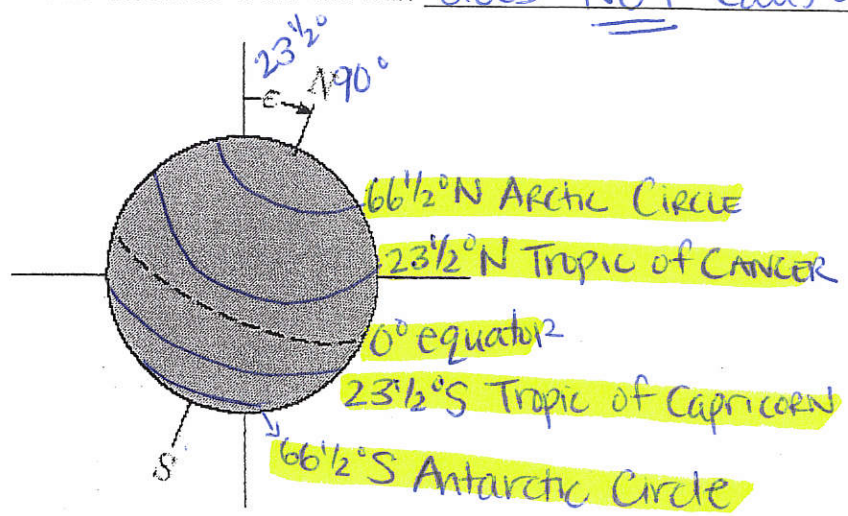 does NOT cause
23½°
ε
N90°
66½°N Arctic Circle
23½°N Tropic of Cancer
0° equator
23½°S Tropic of Capricorn
66½°S Antarctic Circle
S